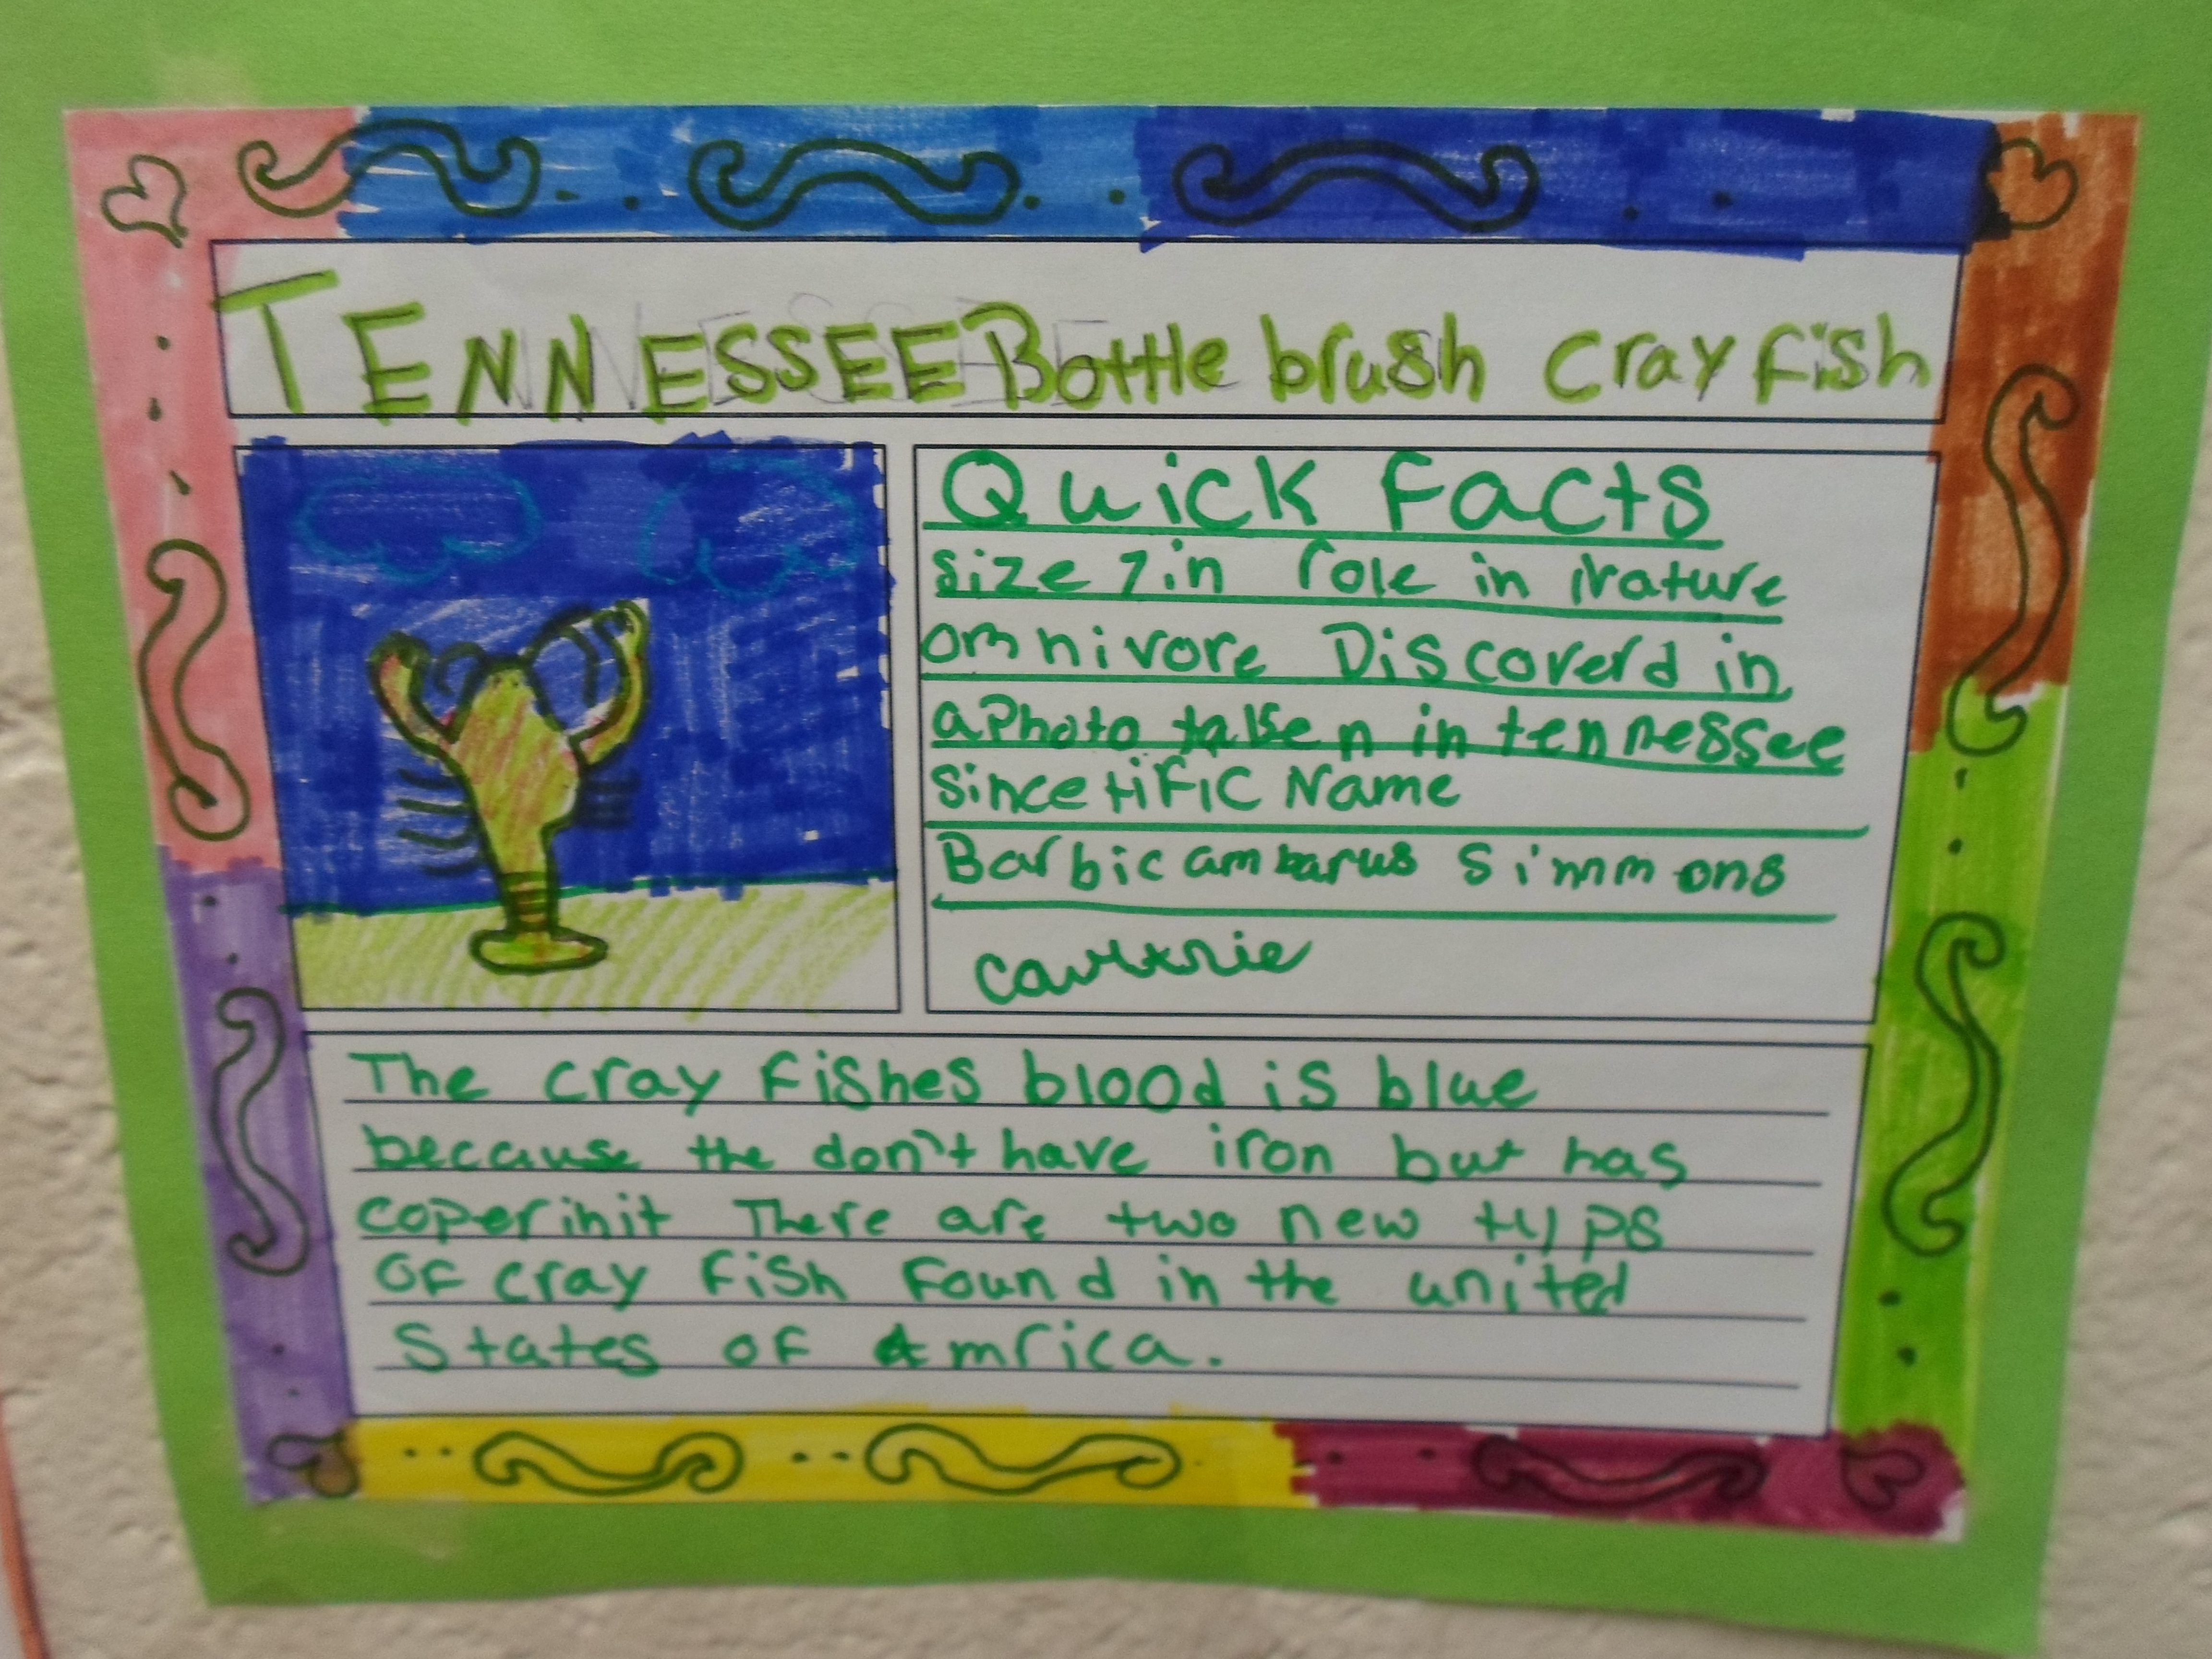 TENNESSEE Bottle brush cray fish
Quick Facts
size 7in role in Nature
omnivore Discoverd in
a Photo taken in tennessee
sincetific Name
Barbicambarus simmons
The cray fishes blood is blue
because the don't have iron but has
coper init There are two new typs
of cray fish found in the united
states of Amrica.